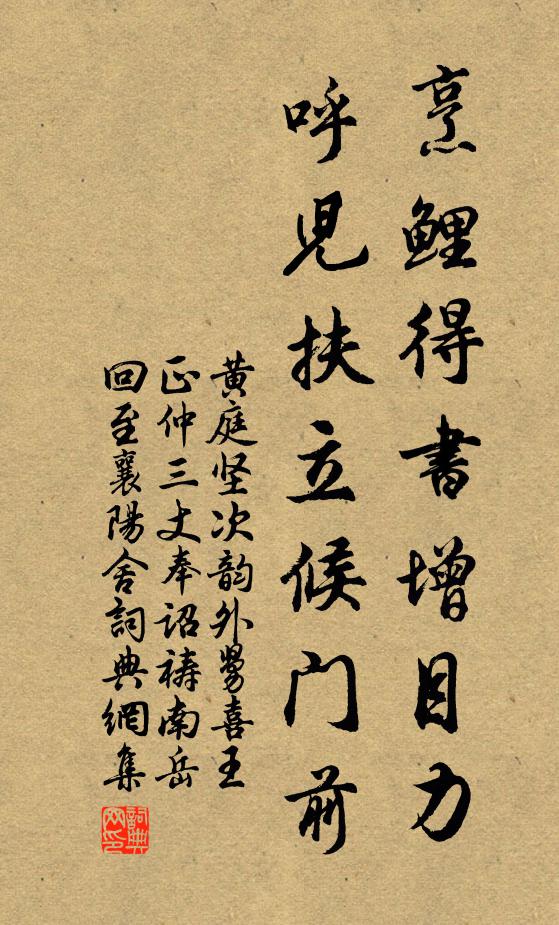 烹鯉得書增目力
呼兒扶立候门前
黄庭坚次韵外舅喜王
正仲三丈奉诏祷南岳
回至襄陽舍詞典網集
詞典
网印